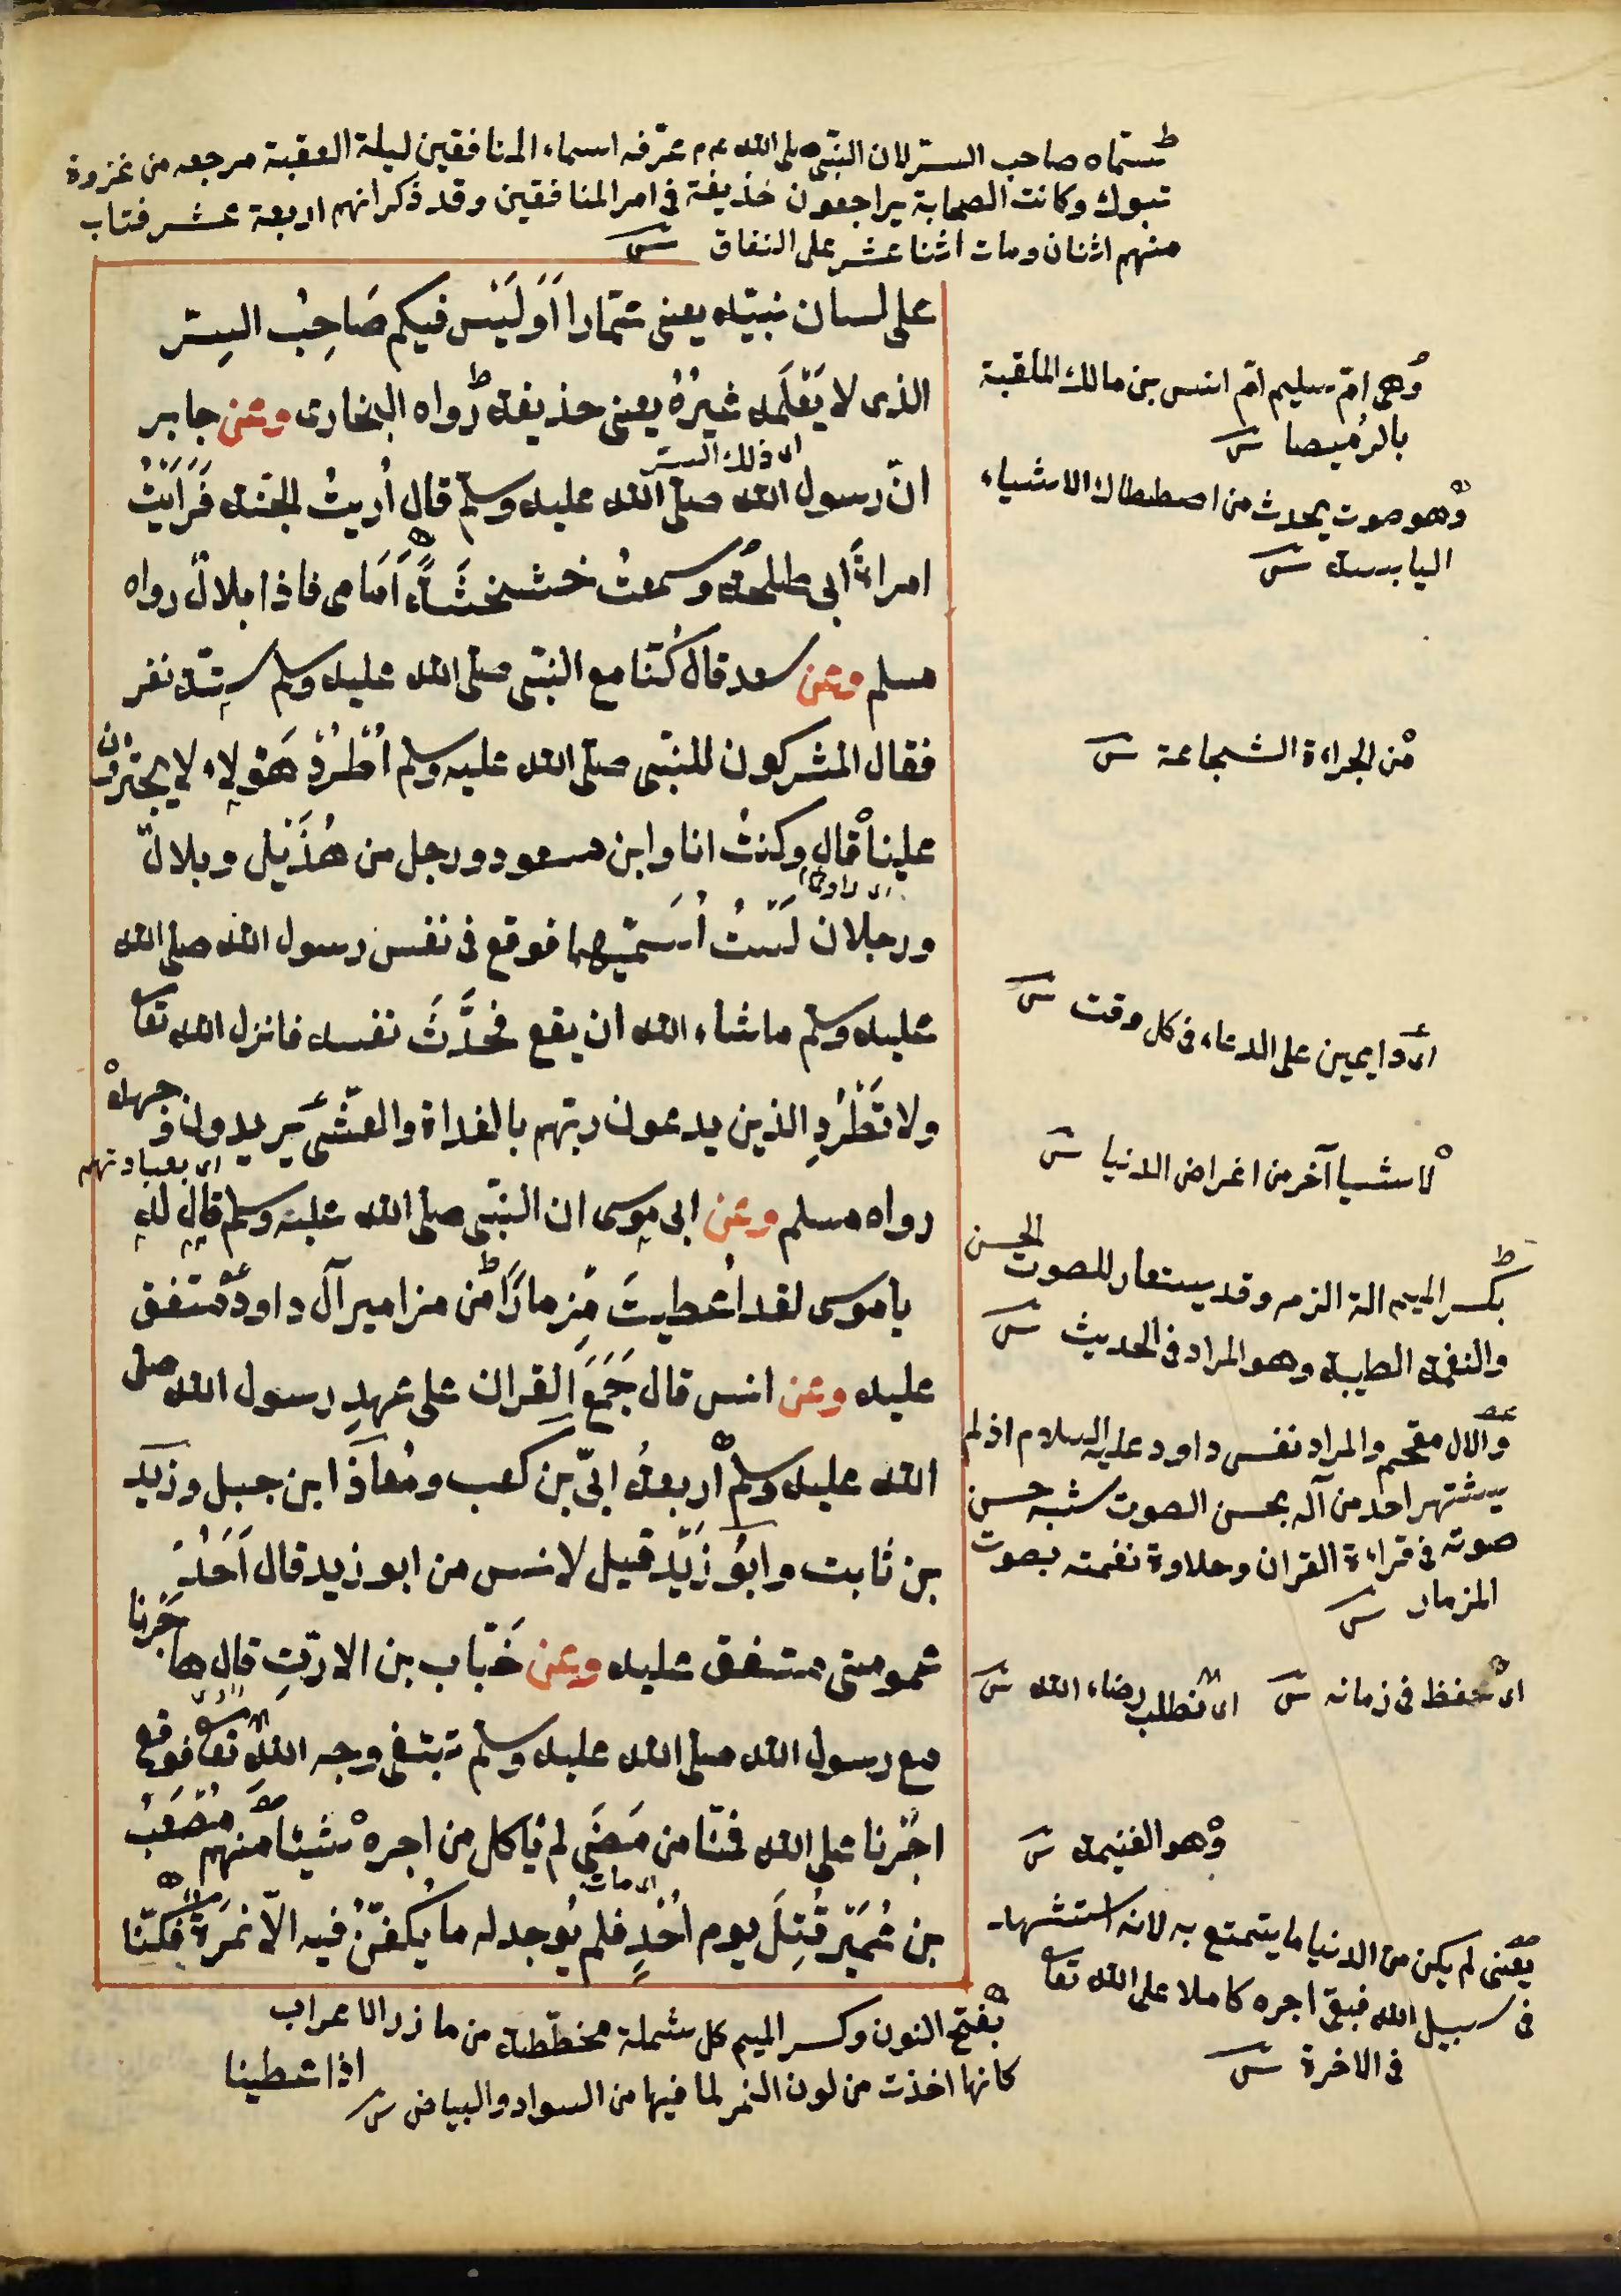 سماه صاحب السر لان النبى صلى الله عم عرفه اسماء المنافقين ليلة العقبة مرجعه من غزوة
تبوك وكانت الصحابة يراجعون حذيفة فى امر المنافقين وقد ذكر انهم اربعة عشر فتاب
منهم اثنان ومات اثنا عشر على النفاق ش
على لسان نبيّه يعنى عمّارا اَوَلَيْسَ فيكم صَاحِبُ السِرّ
الذى لا يَعْلَمه غيرُهُ يعنى حذيفة رواه البخارى وعن جابر
اى ذلك السر
انّ رسول الله صلى الله عليه وسلم قال اُرِيتُ الجنّة فَرَاَيْتُ
امراةَ ابى طلحة وسمعتُ خشخشةً اَمَامى فاذا بلالٌ رواه
مسلم وعن سعد قال كُنّا مع النبّى صلى الله عليه وسلم سِتّة نفر
فقال المشركون للنبّى صلى الله عليه وسلم اُطْرُدْ هَؤلاءِ لا يجترؤن
علينا قال وكنتُ انا وابن مسعود ورجل من هُذَيْل وبلالٌ
ورجلان لَسْتُ اُسَمّيهما فوقع فى نفس رسول الله صلى الله
عليه وسلم ماشاء الله ان يقع فحَدَّثَ نفسه فانزل الله تعا
ولا تَطْرُدِ الذين يدعون ربّهم بالغداة والعَشّى يريدون وجهه
اى بعبادتهم
رواه مسلم وعن ابى موسى ان النبّى صلى الله عليه وسلم قال له
ياموسى لقد اُعطيتَ مِزمارًا من مزامير آل داود متفق
عليه وعن انس قال جَمَعَ القران على عهدِ رسول الله صلى
الله عليه وسلم اربعةُ ابىّ بن كعب ومُعاذ ابن جبل وزَيْد
بن ثابت وابُو زَيْد قيل لانس من ابو زيد قال اَحَدُ
عمومتى متفق عليه وعن خَبّاب بن الارتِّ قال هاجَرنا
مع رسول الله صلى الله عليه وسلم نبتغى وجه الله تعا فوقع
اجْرُنا على الله فمنّا من مَضَى لم يأكل من اجره شيئا منهم مُصْعَبُ
اى مات
بن عُمَيْر قُتِلَ يوم اُحُدٍ فلم يُوجد له ما يُكفّنُ فيه الاّ نمَرَةٌ فكنّا
اذا غطينا
وهى امّ سليم امّ انس بن مالك الملقبة
بالرُميصا ش
وهو صوت يحدث من اصطكاك الاشياء
اليابسة ش
من الجراءة الشجاعة ش
اى دايمين على الدعاء فى كل وقت ش
لا شيا آخر من اغراض الدنيا ش
بكسر الميم الة الزمر وقد يستعار للصوت الحسن
والنغمة الطيبة وهو المراد فى الحديث ش
والآل مقحم والمراد نفس داود عليه السلام اذ لم
يشتهر احد من آله بحسن الصوت شبه حسن
صوته فى قراءة القران وحلاوة نغمته بصوت
المزمار ش
اى حفظ فى زمانه ش
اى نطلب رضاء الله ش
وهو الغنيمة ش
يعنى لم يكن من الدنيا ما يتمتع به لانه استشهد
فى سبيل الله فبقى اجره كاملا على الله تعا
فى الاخرة ش
بفتح النون وكسر الميم كل شملة مخططة من مازر الاعراب
كانها اخذت من لون النمر لما فيها من السواد والبياض ش